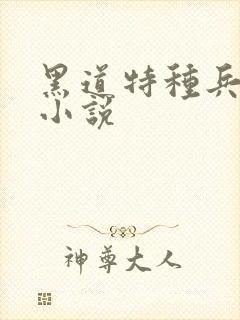 黑道特種兵
小說
神尊大人